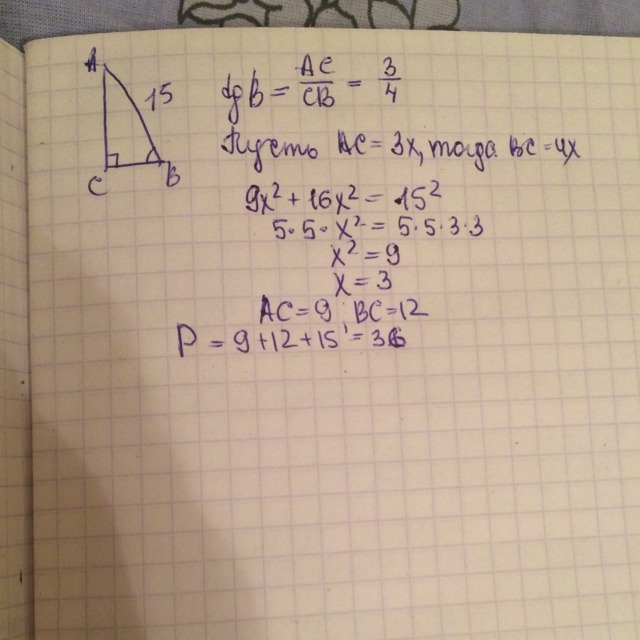 A
15
C
B
tg B = AC/CB = 3/4
Пусть AC = 3x, тогда BC = 4x
9x² + 16x² = 15²
5·5·x² = 5·5·3·3
x² = 9
x = 3
AC = 9 BC = 12
P = 9 + 12 + 15 = 36